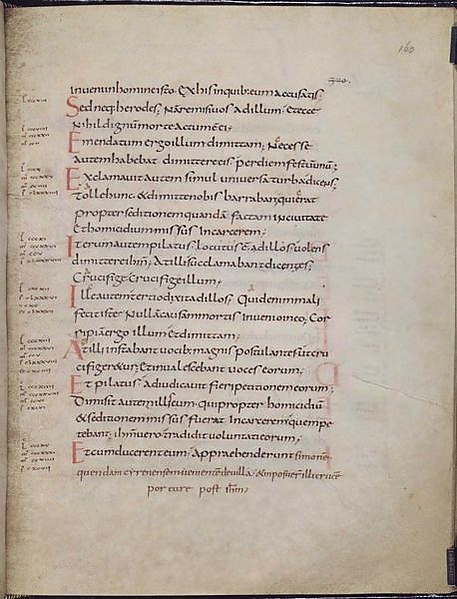 160
inuenuinhomineisto. Exhisinquib;eumaccusatis;
Sedneq;herodes; Nāremisiuosadillum; Etecce
Nihildignūmorteactumē ei;
Emendatum ergoillum dimittam; Necesse
autemhabebat dimittereeis; perdiemfestūunū;
Exclamauitautem simul uniuersaturbadicens;
Tollehunc &dimittenobis barraban;quierat
propterseditionemquandā factam inciuitate
Ethomicidiummissus Incarcerem;
Iterumautempilatus locutus ē adillosuolens
dimittereihm; Atillisucclamabantdicentes;
Crucifige Crucifigeillum;
Illeautemtertiodixitadillos Quidenimmali
fecitiste Nullācausammortis inuenioineo; Cor
ripiāergo illumetdimittam;
Atilli instabant uocib;magnis postulantesutcru
cifigeretur; Etinualescebant uoces eorum;
Etpilatus adiudicauit fieripetitionemeorum;
Dimisit autemilliseum quipropter homicidiū
&seditionemmissus fuerat Incarceremquempe
tebant; ihmuero tradidit uoluntatieorum;
Etcumducerenteum Appraehenderunt simonē
quendamcyrenensemuenientēdeuilla &inposuerūtillicrucē
portare post ihm;